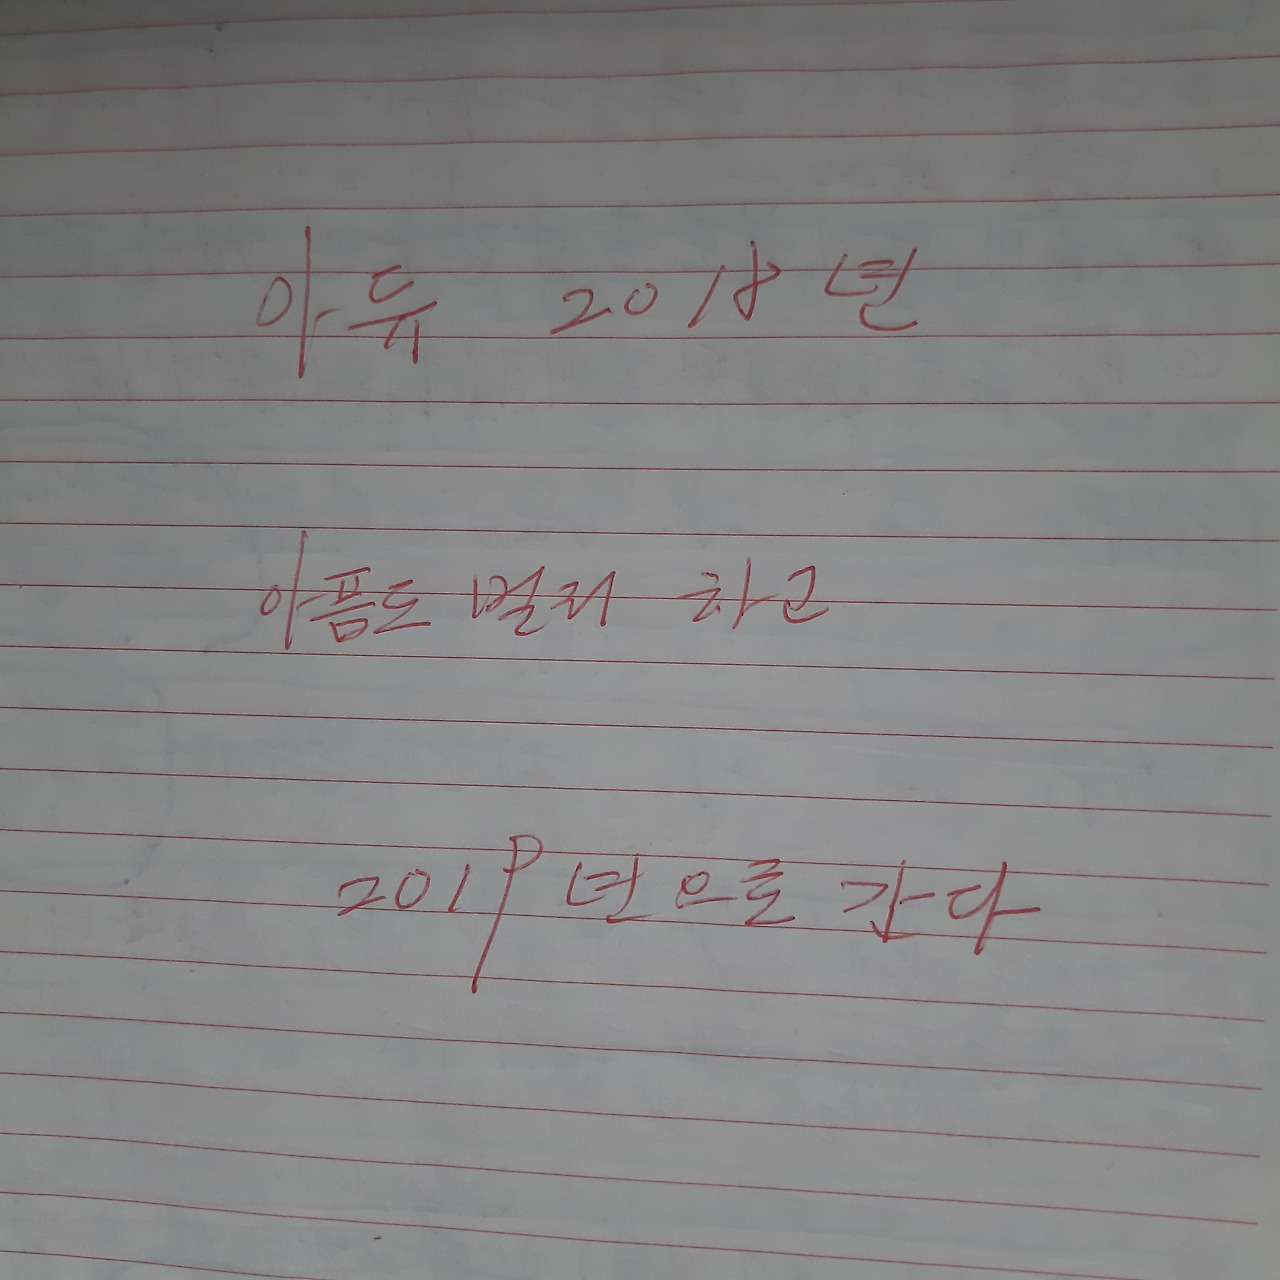 아듀 2018년
아픔도 멀리 하고
2019년으로 간다